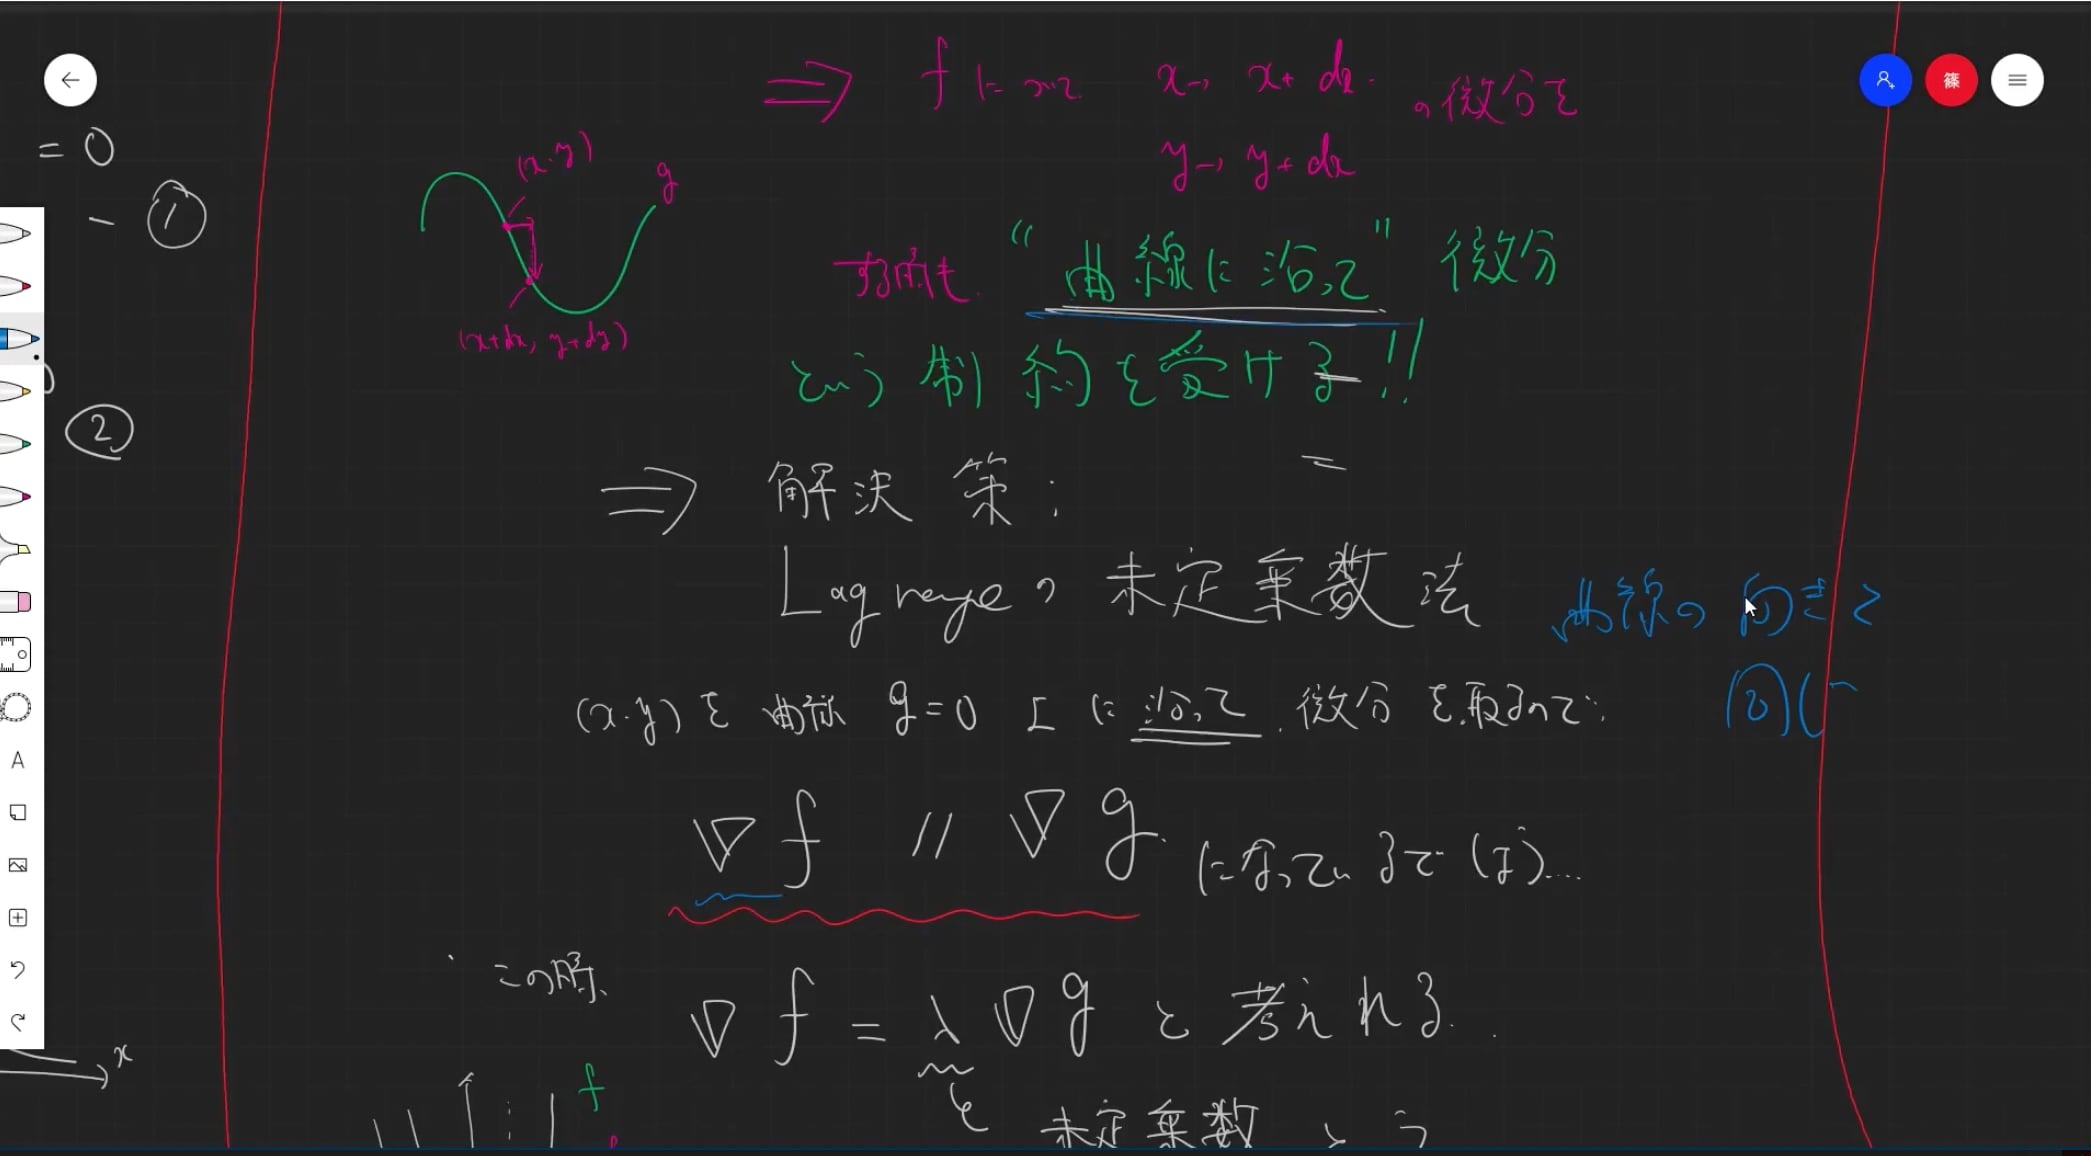 ⇒ f について x→ x+dx の微分を
y→ y+dx
(x,y)
g
(x+dx, y+dy)
= 0
- ①
②
する際も "曲線に沿って" 微分
という制約を受ける!!
⇒ 解決策:
Lagrangeの未定乗数法
曲線の向きと
同じ
(x,y)を曲線 g=0 上に沿って微分を取るので:
∇f // ∇g になっているはず...
この際、
∇f = λ∇g と考えれる.
x
f
未定乗数という
篠
A